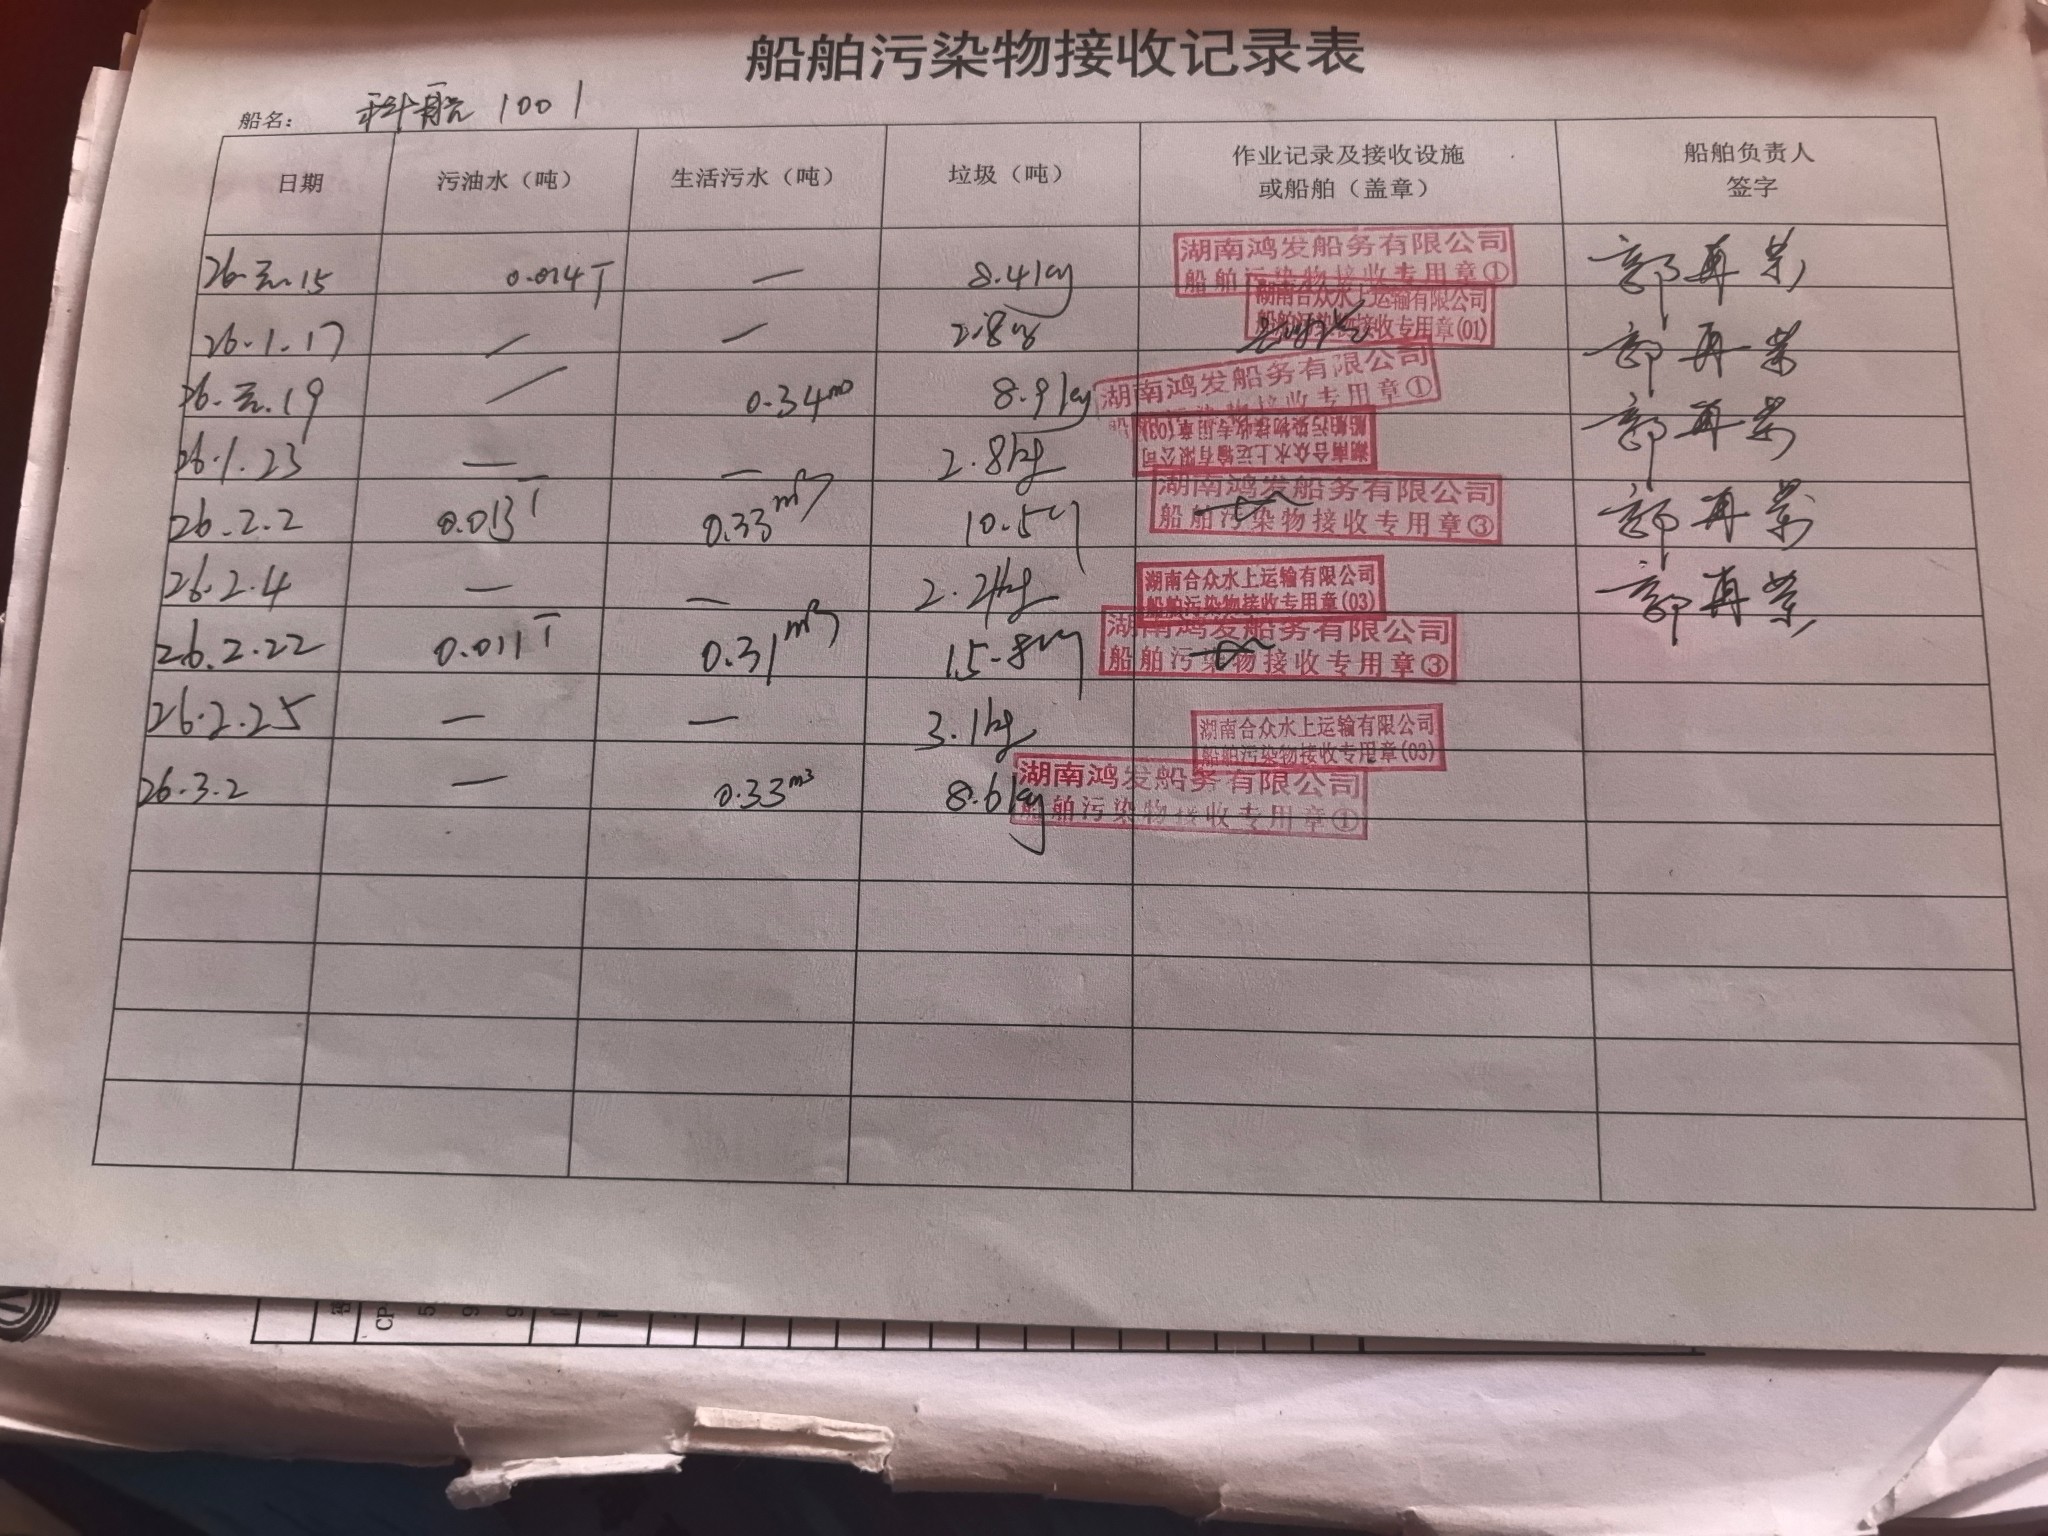 船舶污染物接收记录表
船名： 科船 1001
日期 污油水（吨） 生活污水（吨） 垃圾（吨） 作业记录及接收设施或船舶（盖章） 船舶负责人签字
26.元.15 0.014T — 8.4kg 湖南鸿发船务有限公司 船舶污染物接收专用章① 郭再荣
26.1.17 — — 2.8kg 湖南合众水上运输有限公司 船舶污染物接收专用章(01) 郭再荣
26.元.19 — 0.34m³ 8.9kg 湖南鸿发船务有限公司 船舶污染物接收专用章① 郭再荣
26.1.23 — — 2.8kg 湖南合众水上运输有限公司 船舶污染物接收专用章(03)
26.2.2 0.013T 0.33m³ 10.5kg 湖南鸿发船务有限公司 船舶污染物接收专用章③ 郭再荣
26.2.4 — — 2.2kg 湖南合众水上运输有限公司 船舶污染物接收专用章(03) 郭再荣
26.2.22 0.011T 0.31m³ 15.8kg 湖南鸿发船务有限公司 船舶污染物接收专用章③
26.2.25 — — 3.1kg 湖南合众水上运输有限公司 船舶污染物接收专用章(03)
26.3.2 — 0.33m³ 8.6kg 湖南鸿发船务有限公司 船舶污染物接收专用章①
CP